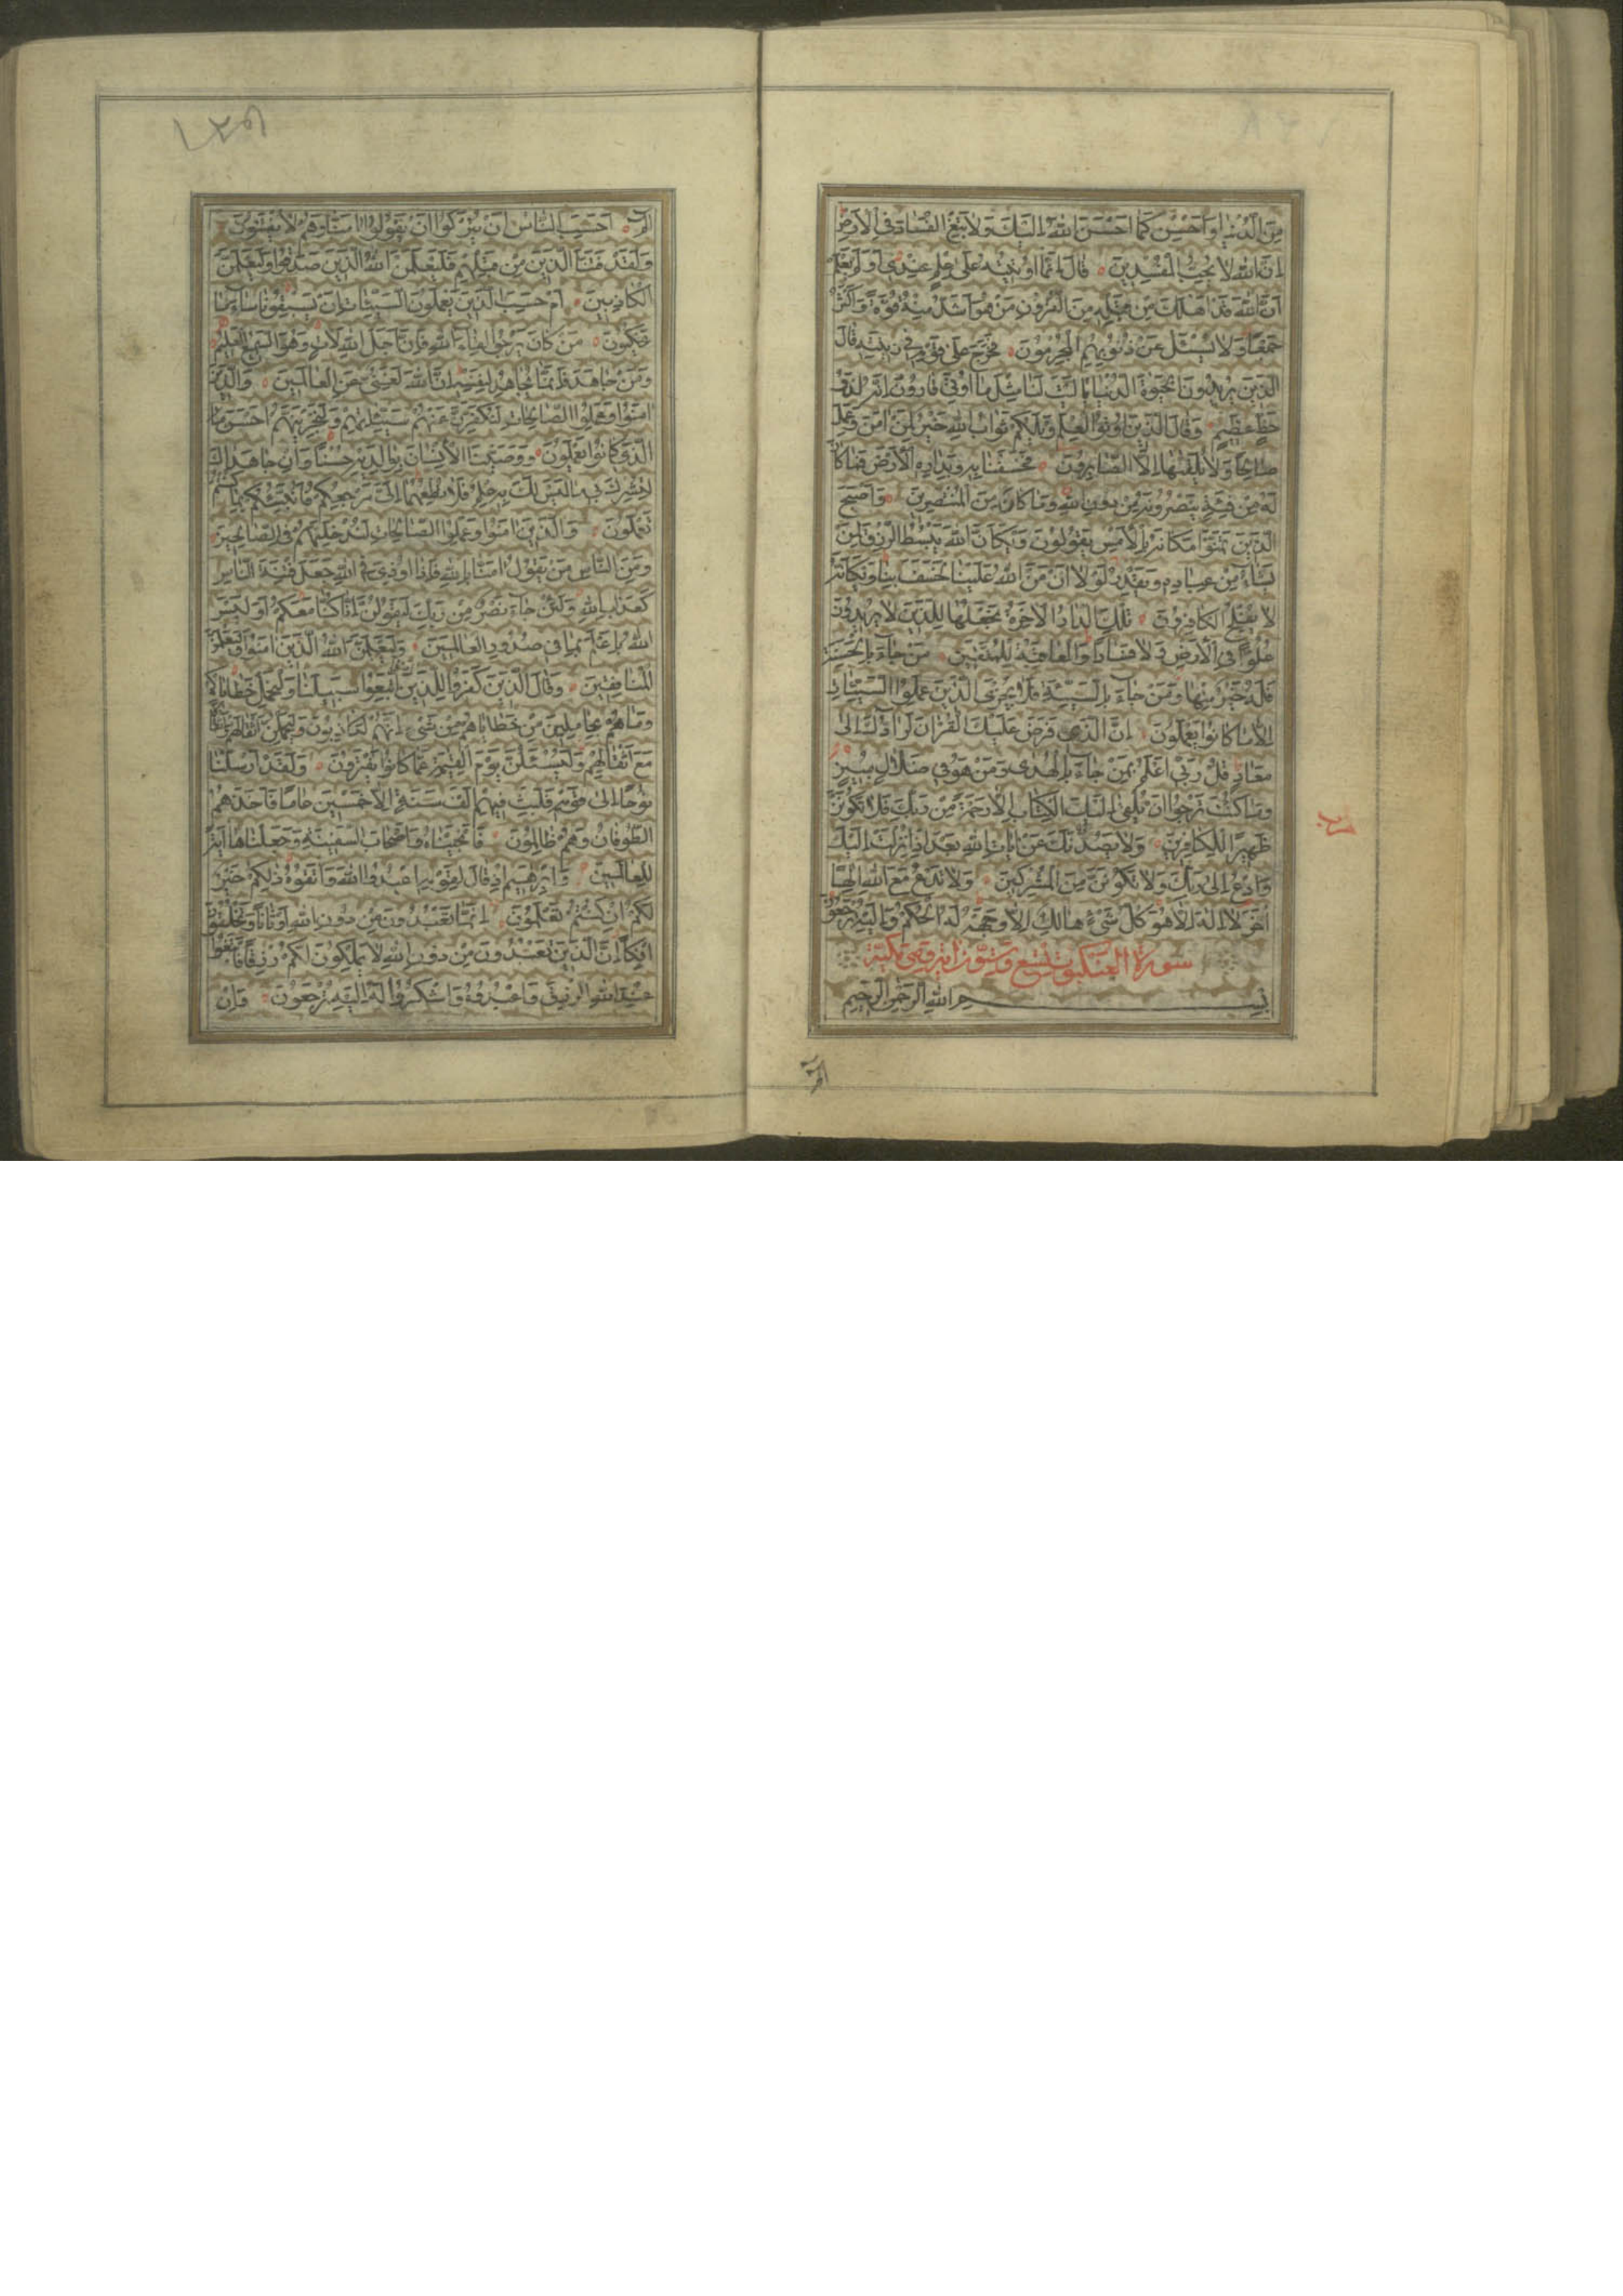 مِنَ الدُّنْيا وَاَحْسِنْ كَما اَحْسَنَ اللهُ اِلَيْكَ وَلا تَبْغِ الْفَسادَ فِي الْاَرْضِ
اِنَّ اللهَ لا يُحِبُّ الْمُفْسِدينَ قالَ اِنَّما اُوتيتُهُ عَلى عِلْمٍ عِنْدي اَوَلَمْ يَعْلَمْ
اَنَّ اللهَ قَدْ اَهْلَكَ مِنْ قَبْلِهِ مِنَ الْقُرُونِ مَنْ هُوَ اَشَدُّ مِنْهُ قُوَّةً وَاَكْثَرُ
جَمْعًا وَلا يُسْئَلُ عَنْ ذُنُوبِهِمُ الْمُجْرِمُونَ فَخَرَجَ عَلى قَوْمِهِ في زينَتِهِ قالَ
الَّذينَ يُريدُونَ الْحَيوةَ الدُّنْيا يا لَيْتَ لَنا مِثْلَ ما اُوتِيَ قارُونُ اِنَّهُ لَذُو
حَظٍّ عَظيمٍ وَقالَ الَّذينَ اُوتُوا الْعِلْمَ وَيْلَكُمْ ثَوابُ اللهِ خَيْرٌ لِمَنْ امَنَ وَعَمِلَ
صالِحًا وَلا يُلَقّيها اِلَّا الصّابِرُونَ فَخَسَفْنا بِهِ وَبِدارِهِ الْاَرْضَ فَما كانَ
لَهُ مِنْ فِئَةٍ يَنْصُرُونَهُ مِنْ دُونِ اللهِ وَما كانَ مِنَ الْمُنْتَصِرينَ وَاَصْبَحَ
الَّذينَ تَمَنَّوْا مَكانَهُ بِالْاَمْسِ يَقُولُونَ وَيْكَاَنَّ اللهَ يَبْسُطُ الرِّزْقَ لِمَنْ
يَشاءُ مِنْ عِبادِهِ وَيَقْدِرُ لَوْلا اَنْ مَنَّ اللهُ عَلَيْنا لَخَسَفَ بِنا وَيْكَاَنَّهُ
لا يُفْلِحُ الْكافِرُونَ تِلْكَ الدّارُ الْاخِرَةُ نَجْعَلُها لِلَّذينَ لا يُريدُونَ
عُلُوًّا فِي الْاَرْضِ وَلا فَسادًا وَالْعاقِبَةُ لِلْمُتَّقينَ مَنْ جاءَ بِالْحَسَنَةِ
فَلَهُ خَيْرٌ مِنْها وَمَنْ جاءَ بِالسَّيِّئَةِ فَلا يُجْزَى الَّذينَ عَمِلُوا السَّيِّئاتِ
اِلّا ما كانُوا يَعْمَلُونَ اِنَّ الَّذي فَرَضَ عَلَيْكَ الْقُرْانَ لَرادُّكَ اِلى
مَعادٍ قُلْ رَبّي اَعْلَمُ مَنْ جاءَ بِالْهُدى وَمَنْ هُوَ في ضَلالٍ مُبينٍ
وَما كُنْتَ تَرْجُوا اَنْ يُلْقى اِلَيْكَ الْكِتابُ اِلّا رَحْمَةً مِنْ رَبِّكَ فَلا تَكُونَنَّ
ظَهيرًا لِلْكافِرينَ وَلا يَصُدُّنَّكَ عَنْ اياتِ اللهِ بَعْدَ اِذْ اُنْزِلَتْ اِلَيْكَ
وَادْعُ اِلى رَبِّكَ وَلا تَكُونَنَّ مِنَ الْمُشْرِكينَ وَلا تَدْعُ مَعَ اللهِ اِلهًا
اخَرَ لا اِلهَ اِلّا هُوَ كُلُّ شَيْءٍ هالِكٌ اِلّا وَجْهَهُ لَهُ الْحُكْمُ وَاِلَيْهِ تُرْجَعُونَ
سورة العنكبوت تسع وستون اية وهي مكية
بِسْمِ اللهِ الرَّحْمنِ الرَّحيمِ
الم
١٢٥٩
الم اَحَسِبَ النّاسُ اَنْ يُتْرَكُوا اَنْ يَقُولُوا امَنّا وَهُمْ لا يُفْتَنُونَ
وَلَقَدْ فَتَنَّا الَّذينَ مِنْ قَبْلِهِمْ فَلَيَعْلَمَنَّ اللهُ الَّذينَ صَدَقُوا وَلَيَعْلَمَنَّ
الْكاذِبينَ اَمْ حَسِبَ الَّذينَ يَعْمَلُونَ السَّيِّئاتِ اَنْ يَسْبِقُونا ساءَ ما
يَحْكُمُونَ مَنْ كانَ يَرْجُوا لِقاءَ اللهِ فَاِنَّ اَجَلَ اللهِ لَاتٍ وَهُوَ السَّميعُ الْعَليمُ
وَمَنْ جاهَدَ فَاِنَّما يُجاهِدُ لِنَفْسِهِ اِنَّ اللهَ لَغَنِيٌّ عَنِ الْعالَمينَ وَالَّذينَ
امَنُوا وَعَمِلُوا الصّالِحاتِ لَنُكَفِّرَنَّ عَنْهُمْ سَيِّئاتِهِمْ وَلَنَجْزِيَنَّهُمْ اَحْسَنَ
الَّذي كانُوا يَعْمَلُونَ وَوَصَّيْنَا الْاِنْسانَ بِوالِدَيْهِ حُسْنًا وَاِنْ جاهَداكَ
لِتُشْرِكَ بي ما لَيْسَ لَكَ بِهِ عِلْمٌ فَلا تُطِعْهُما اِلَيَّ مَرْجِعُكُمْ فَاُنَبِّئُكُمْ بِما كُنْتُمْ
تَعْمَلُونَ وَالَّذينَ امَنُوا وَعَمِلُوا الصّالِحاتِ لَنُدْخِلَنَّهُمْ فِي الصّالِحينَ
وَمِنَ النّاسِ مَنْ يَقُولُ امَنّا بِاللهِ فَاِذا اُوذِيَ فِي اللهِ جَعَلَ فِتْنَةَ النّاسِ
كَعَذابِ اللهِ وَلَئِنْ جاءَ نَصْرٌ مِنْ رَبِّكَ لَيَقُولُنَّ اِنّا كُنّا مَعَكُمْ اَوَلَيْسَ
اللهُ بِاَعْلَمَ بِما في صُدُورِ الْعالَمينَ وَلَيَعْلَمَنَّ اللهُ الَّذينَ امَنُوا وَلَيَعْلَمَنَّ
الْمُنافِقينَ وَقالَ الَّذينَ كَفَرُوا لِلَّذينَ امَنُوا اتَّبِعُوا سَبيلَنا وَلْنَحْمِلْ خَطاياكُمْ
وَما هُمْ بِحامِلينَ مِنْ خَطاياهُمْ مِنْ شَيْءٍ اِنَّهُمْ لَكاذِبُونَ وَلَيَحْمِلُنَّ اَثْقالَهُمْ وَاَثْقالًا
مَعَ اَثْقالِهِمْ وَلَيُسْئَلُنَّ يَوْمَ الْقِيمَةِ عَمّا كانُوا يَفْتَرُونَ وَلَقَدْ اَرْسَلْنا
نُوحًا اِلى قَوْمِهِ فَلَبِثَ فيهِمْ اَلْفَ سَنَةٍ اِلّا خَمْسينَ عامًا فَاَخَذَهُمُ
الطُّوفانُ وَهُمْ ظالِمُونَ فَاَنْجَيْناهُ وَاَصْحابَ السَّفينَةِ وَجَعَلْناها ايَةً
لِلْعالَمينَ وَاِبْرهيمَ اِذْ قالَ لِقَوْمِهِ اعْبُدُوا اللهَ وَاتَّقُوهُ ذلِكُمْ خَيْرٌ
لَكُمْ اِنْ كُنْتُمْ تَعْلَمُونَ اِنَّما تَعْبُدُونَ مِنْ دُونِ اللهِ اَوْثانًا وَتَخْلُقُونَ
اِفْكًا اِنَّ الَّذينَ تَعْبُدُونَ مِنْ دُونِ اللهِ لا يَمْلِكُونَ لَكُمْ رِزْقًا فَابْتَغُوا
عِنْدَ اللهِ الرِّزْقَ وَاعْبُدُوهُ وَاشْكُرُوا لَهُ اِلَيْهِ تُرْجَعُونَ وَاِنْ